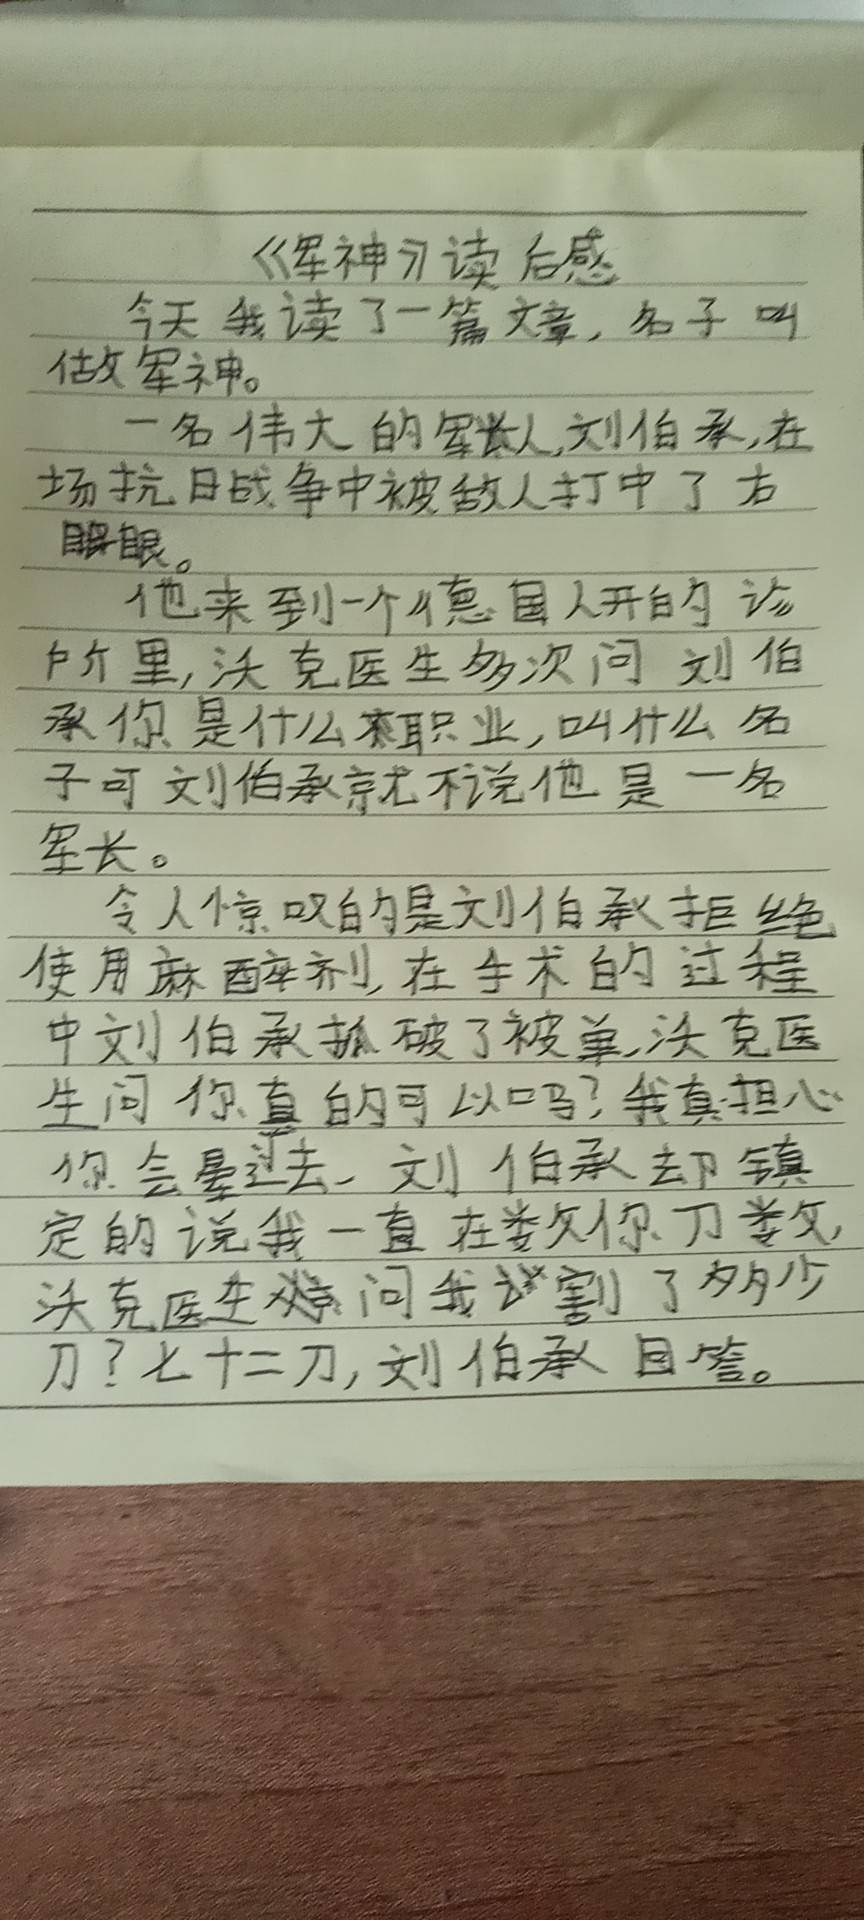 《军神》读后感
今天我读了一篇文章，名子叫
做军神。
一名伟大的军人，刘伯承，在
场抗日战争中被敌人打中了右
眼。
他来到一个德国人开的诊
所里，沃克医生多次问刘伯
承你是什么职业，叫什么名
子可刘伯承就不说他是一名
军长。
令人惊叹的是刘伯承拒绝
使用麻醉剂，在手术的过程
中刘伯承抓破了被单，沃克医
生问你真的可以吗？我真担心
你会晕过去，刘伯承却镇
定的说我一直在数你刀数，
沃克医生惊问我割了多少
刀？七十二刀，刘伯承回答。